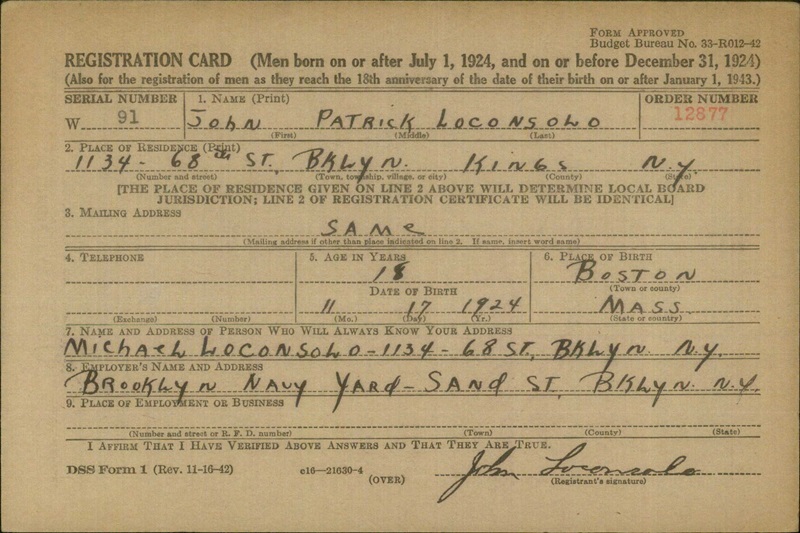 FORM APPROVED
Budget Bureau No. 33-R012-42
REGISTRATION CARD (Men born on or after July 1, 1924, and on or before December 31, 1924)
(Also for the registration of men as they reach the 18th anniversary of the date of their birth on or after January 1, 1943.)
SERIAL NUMBER 1. NAME (Print) ORDER NUMBER
W 91 JOHN PATRICK LOCONSOLO 12877
(First) (Middle) (Last)
2. PLACE OF RESIDENCE (Print)
1134- 68th ST. BKLYN. KINGS N.Y.
(Number and street) (Town, township, village, or city) (County) (State)
[THE PLACE OF RESIDENCE GIVEN ON LINE 2 ABOVE WILL DETERMINE LOCAL BOARD
JURISDICTION; LINE 2 OF REGISTRATION CERTIFICATE WILL BE IDENTICAL]
3. MAILING ADDRESS
SAME
(Mailing address if other than place indicated on line 2. If same, insert word same)
4. TELEPHONE 5. AGE IN YEARS 6. PLACE OF BIRTH
18 BOSTON
DATE OF BIRTH (Town or county)
11 17 1924 MASS.
(Exchange) (Number) (Mo.) (Day) (Yr.) (State or country)
7. NAME AND ADDRESS OF PERSON WHO WILL ALWAYS KNOW YOUR ADDRESS
MICHAEL LOCONSOLO-1134- 68 ST. BKLYN. N.Y.
8. EMPLOYER'S NAME AND ADDRESS
BROOKLYN NAVY YARD- SAND ST. BKLYN. N.Y.
9. PLACE OF EMPLOYMENT OR BUSINESS
(Number and street or R. F. D. number) (Town) (County) (State)
I AFFIRM THAT I HAVE VERIFIED ABOVE ANSWERS AND THAT THEY ARE TRUE.
DSS Form 1 (Rev. 11-16-42) c16—21630-4 John Loconsolo
(OVER) (Registrant's signature)